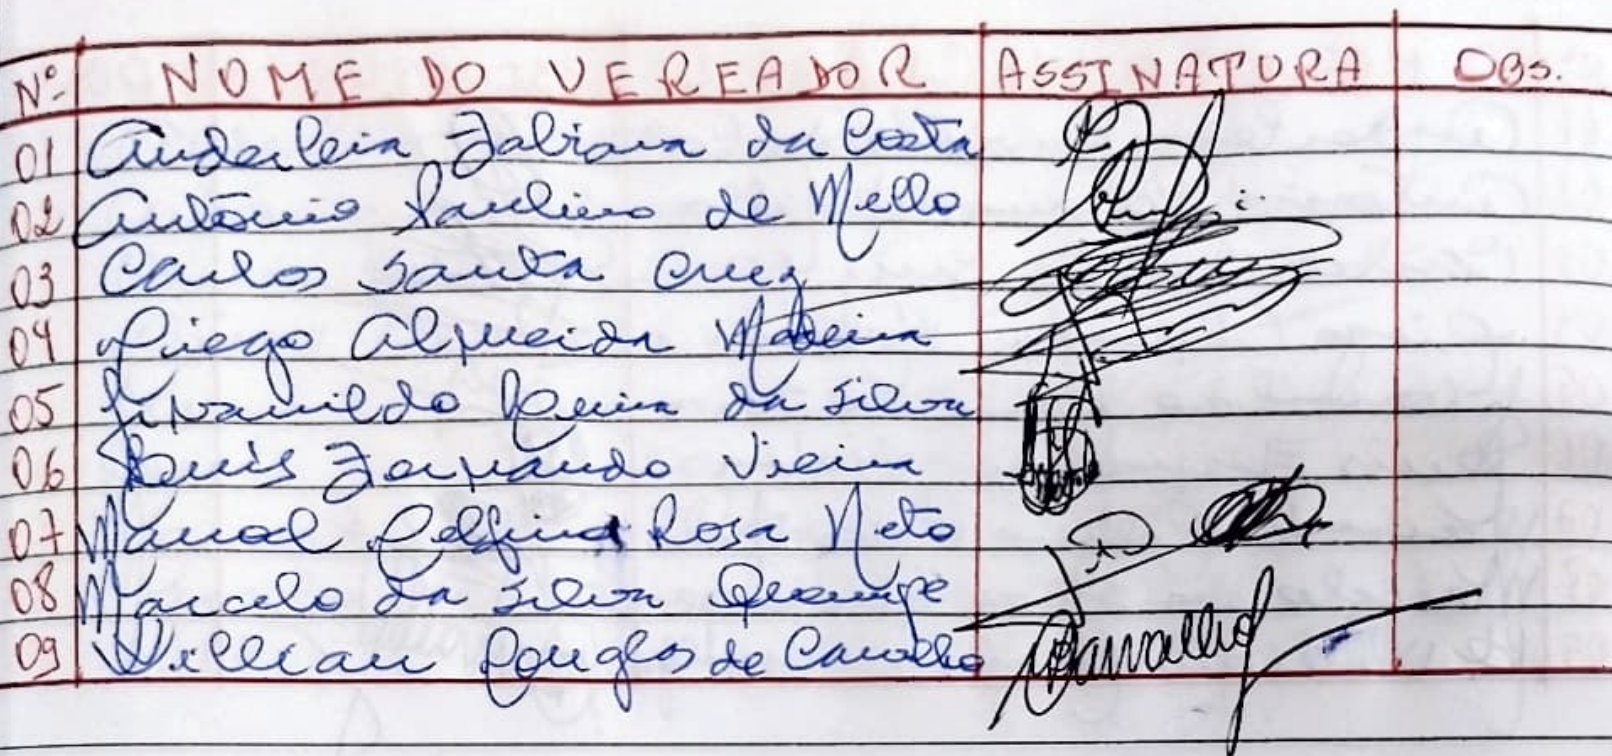 Nº NOME DO VEREADOR ASSINATURA OBS.
01 Anderleia Fabiana da Costa
02 Antônio Paulino de Mello
03 Carlos Santa Cruz
04 Diego Almeida Madeira
05 da Silva
06 Luis Fernando Vieira
07 Manoel Delfino Rosa Neto
08 Marcelo da Silva
09 Willian Douglas de Carvalho Carvalho